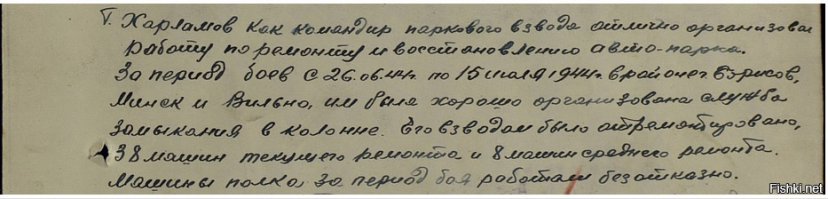 т. Харламов как командир паркового взвода отлично организовал
работу по ремонту и восстановлению авто-парка.
За период боев с 26.06.44г. по 15 июля 1944г. в районе г. Борисов,
Минск и Вильно, им была хорошо организована служба
замыкания в колонне. Его взводом было отремонтировано,
38 машин текущего ремонта и 8 машин среднего ремонта.
Машины полка за период боя работали безотказно.
Fishki.net